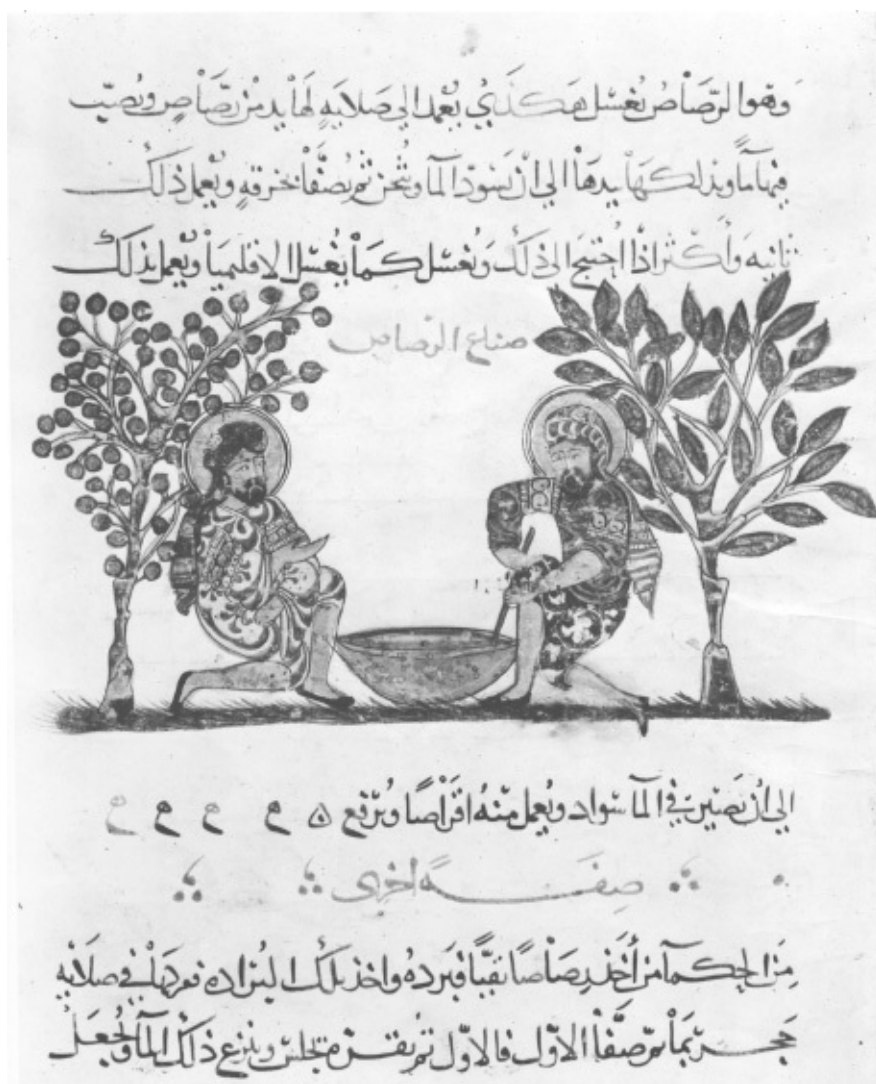 وهوا لرصاص يغسل هكذي يعمد الي صلايه لها يد من رصاص ويصب
فيها مآ ويدلكها بيدها الي ان يسود المآ ويثخن ثم يصفا بخرقه ويعمل ذلك
ثانيه واكثر اذا احتيج الي ذلك ويغسل كما يغسل الاقليميا ويعمل بذلك
صناع الرصاص
الي ان يصير في المآ سواد ويعمل منه اقراصا ويرفع
صفه اخري
من الحكمآ من أخذ رصاصا نقيا فبرده واخذ تلك البراده في صلايه
حجر بمآ ثم صفا الاول فالاول ثم يقره وينزع ذلك المآ